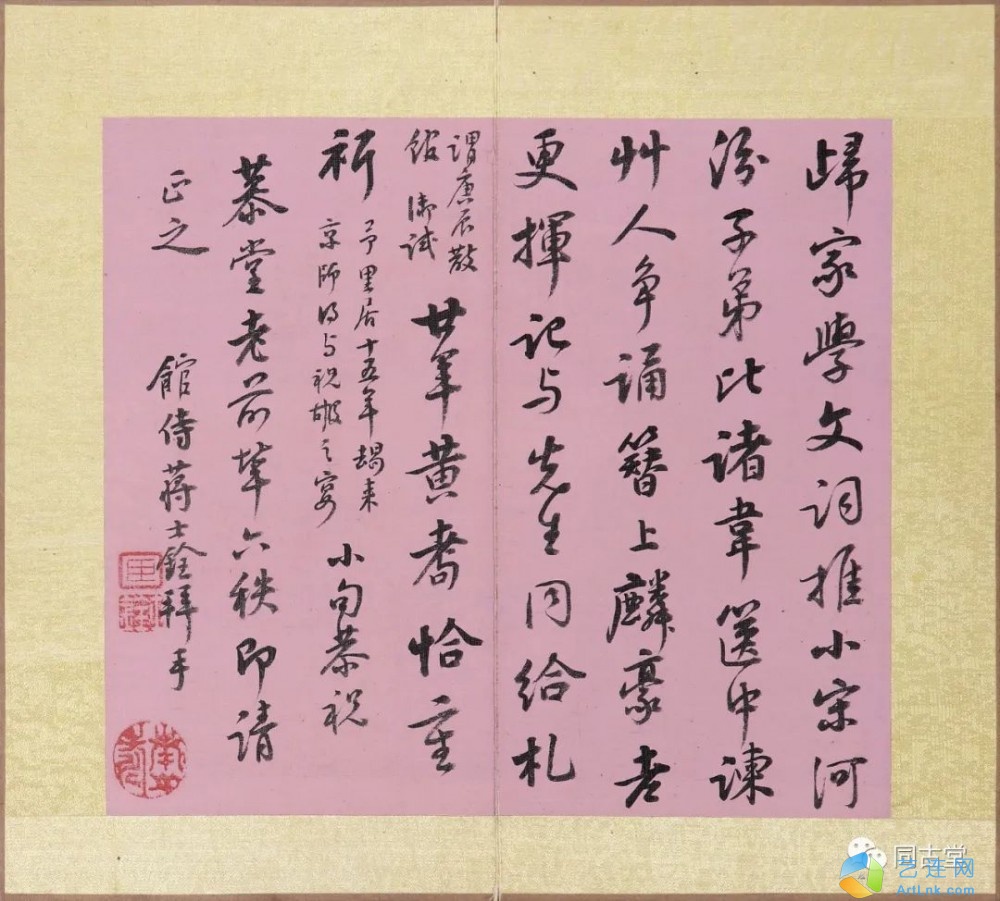 歸家學文詞推小宋河
汾子弟比諸韋篋中諫
艸人爭誦簪上麟豪老
更揮記与先生同給札
謂庚辰散
館御試
廿年黃耇恰重
祈
予里居十五年朅来
京師得与祝嘏之宴
小句恭祝
慕堂老前輩六秩即請
正之
館侍蔣士銓拜手
同古堂
艺连网
ArtLnk.com